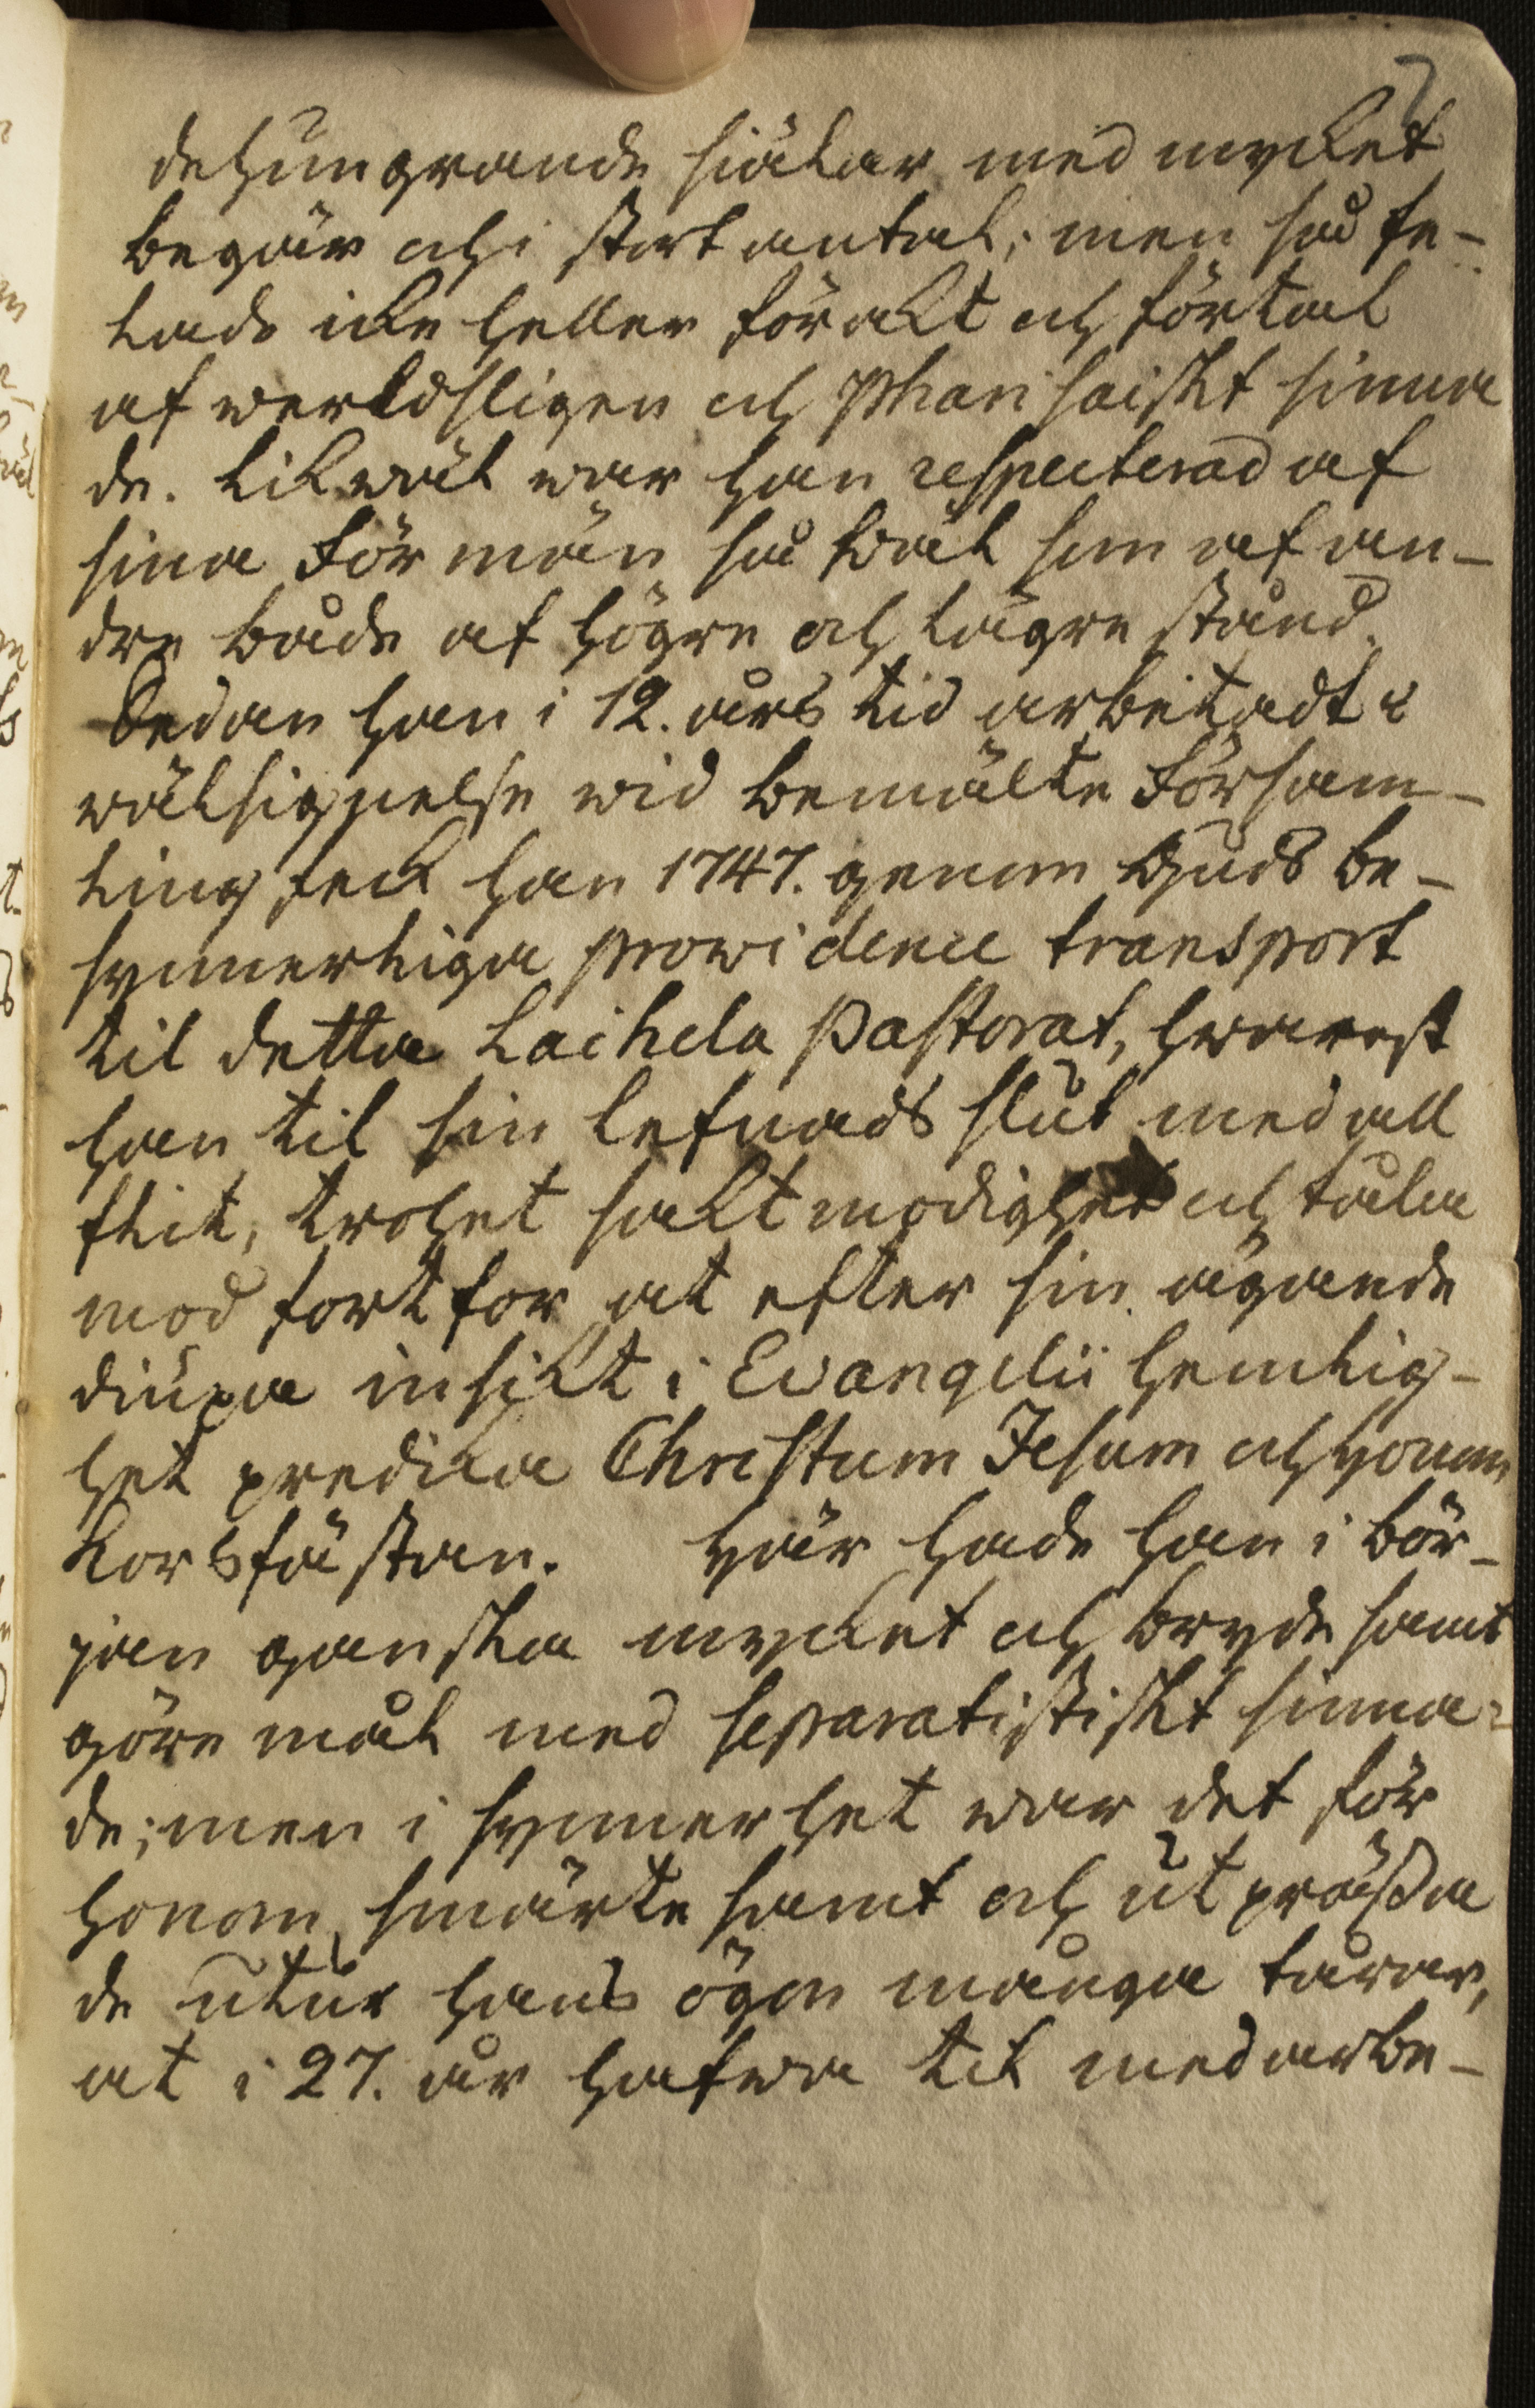 7
de hungrande siälar med mycket
begär och i stort antal; men så fe-
lade icke heller förackt och förtal
af werldsligen och Pharisaiskt sinna
de. Likwäl war han respecterad af
sina Förmän så wäl som af an-
dre både af högre och lägre stånd.
Sedan han i 12. års tid arbetadt i
wälsignelse wid bemälte Försam-
ling feck han 1747. genom Guds be-
synnerliga providence transport
til detta Laihela Pastorat, hwarest
han til sin lefnads slut med all
flit, trohet sacktmodighet och tåla
mod fortfor at efter sin ägande
diupa insickt i Evangelii hemlig-
het predika Christum Jesum och honom
Korsfästan. Här hade han i bör-
jan ganska mycket och brydesamt
göremål med separatistiskt sinna-
de; men i synnerhet war det för
honom smärtesamt och utpräßa
de utur hans ögon många tårar,
at i 27. år hafwa til medarbe-